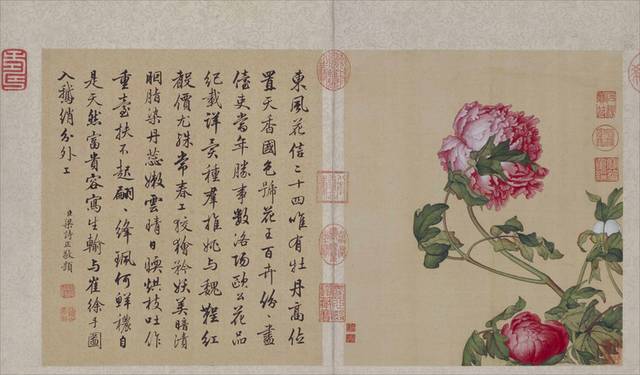 東風花信二十四唯有牡丹高位
置天香國色號花王百卉紛〻盡
儓吏當年勝事數洛陽歐公花品
紀載詳異種羣推姚与魏鞓紅
聲價尤殊常春工狡獪矜妖美暗漬
胭脂染丹蕊嫩雲晴日暖烘枝吐作
重臺扶不起翩〻絳珮何鮮穠自
是天然富貴容寫生輸与崔徐手圖
入鵝綃分外工
臣梁詩正敬題